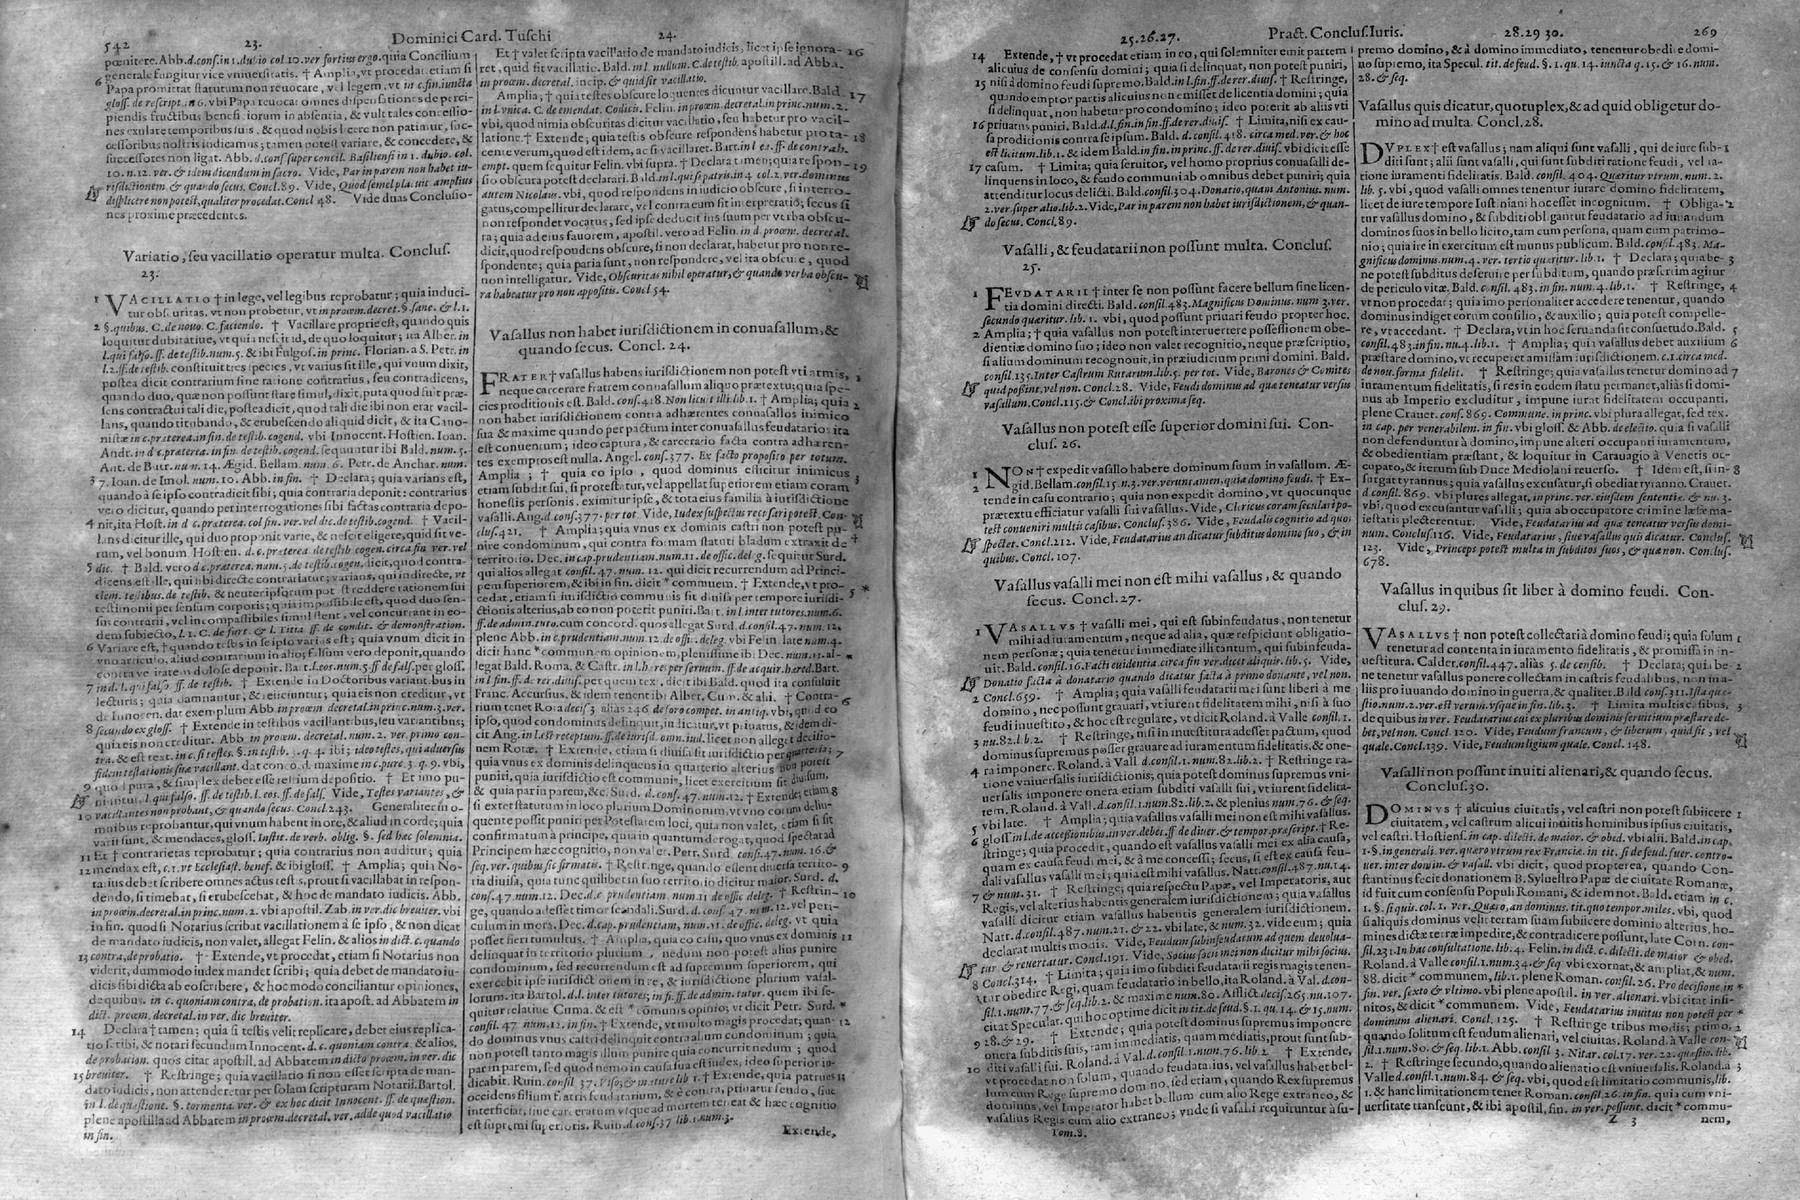 542 23. Dominici Card. Tuschi 24.
pœnitere. Abb. d. conf. in 1. dubio col. 10. ver. fortius ergo. quia Concilium
generale fungitur vice vniuersitatis. † Amplia, vt procedat etiam si
6 Papa promittat statutum non reuocare, vel legem, vt in c. fin. iuncta
gloss. de rescript. n 6. vbi Papa reuocat omnes dispensationes de perci-
piendis fructibus beneficiorum in absentia, & vult tales concessio-
nes exulare temporibus suis, & quod nobis licere non patimur, suc-
cessoribus nostris indicamus; tamen potest variare, & concedere, &
successores non ligat. Abb. d. conf. super concil. Basiliensi in 1. dubio. col.
10. n. 12. ver. & idem dicendum in sacro. Vide, Par in parem non habet iu-
risdictionem & quando secus. Concl. 89. Vide, Quod semel placuit amplius
displicere non potest, qualiter procedat. Concl 48. Vide duas Conclusio-
nes proxime præcedentes.
Variatio, seu vacillatio operatur multa. Conclus.
23.
1 VACILLATIO † in lege, vel legibus reprobatur; quia induci-
tur obscuritas, vt non probetur, vt in proœm. decret. §. sane. & l. 1.
2 §. quibus. C. de nouo. C. faciendo. † Vacillare proprie est, quando quis
loquitur dubitatiue, vt qui nescit id, de quo loquitur; ita Alber. in
l. qui falso. ff. de testib. num. 5. & ibi Fulgos. in princ. Florian. a S. Petr. in
l. 2. ff. de testib. constituit tres species, vt varius sit ille, qui vnum dixit,
postea dicit contrarium sine ratione contrarius, seu contradicens,
quando duo, quæ non possunt stare simul, dixit, puta quod fuit præ-
sens contractui tali die, postea dicit, quod tali die ibi non erat vacil-
lans, quando titubando, & erubescendo aliquid dicit, & ita Cano-
nistæ in c. præterea. in fin. de testib. cogend. vbi Innocent. Hostien. Ioan.
Andr. in d c. præterea. in fin. de testib. cogend. sequuntur Bald. num. 5.
Ant. de Butr. num. 14. Ægid. Bellam. num. 6. Petr. de Anchar. num.
3 7. Ioan. de Imol. num. 10. Abb. in fin. † Declara; quia varians est,
quando à se ipso contradicit sibi; quia contraria deponit: contrarius
vero dicitur, quando per interrogationes sibi factas contraria depo-
4 nit, ita Host. in d c. præterea. col fin. ver. vel dic. de testib. cogend. † Vacil-
lans dicitur ille, qui duo proponit varie, & nescit eligere, quid sit ve-
rum, vel bonum Hostien. d. c. præterea. de testib. cogen. circa fin ver. vel
5 dic. † Bald. vero d c. præterea. num. 5. de testib. cogen. dicit, quod contra-
dicens est ille, qui sibi directe contrariatur; varians, qui indirecte, vt
clem. testibus. de testib. & neuter ipsorum potest reddere rationem sui
testimonii per sensum corporis; quia impossibile est, quod duo sen-
sus contrarii, vel incompassibiles simul stent, vel concurrant in eo-
dem subiecto, l. 1. C. de furt. & l. Titia ff. de condit. & demonstration.
6 Variare est, † quando testis in se ipso varius est; quia vnum dicit in
vno articulo, aliud contrarium in alio; Falsum vero deponit, quando
circa veritatem dolose deponit. Bart. l. eos. num. 5. ff. de fals. per gloss.
7 in d. l. qui falso ff. de testib. † Extende in Doctoribus variantibus in
lecturis; quia damnantur, & reiiciuntur; quia eis non creditur, vt
de Innocen. dat exemplum Abb in proœm. decretal. in princ. num. 3. ver.
8 secundo ex gloss. † Extende in testibus vacillantibus, seu variantibus;
quia eis non creditur. Abb. in proœm. decretal. num. 2. ver. primo con-
tra. & est text. in c. si testes. §. in testib. 2. q. 4. ibi; ideo testes, qui aduersus
fidem testationis suæ vacillant. dat conco. d. maxime in c. pure 3. q. 9. vbi,
9 quod pura, & simplex debet esse testium depositio. † Et imo pu-
niuntur. l. qui falso. ff. de testib. l. eos. ff. de fals. Vide, Testes variantes, &
10 vacillantes non probant, & quando secus. Concl. 243. Generaliter in o-
mnibus reprobantur, qui vnum habent in ore, & aliud in corde; quia
varii sunt, & mendaces, gloss. Instit. de verb. oblig. §. sed hæc solemnia.
11 Et † contrarietas reprobatur; quia contrarius non auditur; quia
12 mendax est, c. 1. vt Ecclesiast. benef. & ibi gloss. † Amplia; quia No-
tarius debet scribere omnes actus testis, prout si vacillabat in respon-
dendo, si timebat, si erubescebat, & hoc de mandato iudicis. Abb.
in proœm. decretal. in princ. num. 2. vbi apostil. Zab. in ver. dic breuiter. vbi
in fin. quod si Notarius scribat vacillationem à se ipso, & non dicat
de mandato iudicis, non valet, allegat Felin. & alios in dict. c. quando
13 contra, de probatio. † Extende, vt procedat, etiam si Notarius non
viderit, dummodo iudex mandet scribi; quia debet de mandato iu-
dicis sibi dicta ab eo scribere, & hoc modo conciliantur opiniones,
de quibus. in c. quoniam contra, de probation. ita apost. ad Abbatem in
dict. proœm. decretal. in ver. dic breuiter.
14 Declara † tamen; quia si testis velit replicare, debet eius replica-
tio scribi, & notari secundum Innocent. d. c. quoniam contra. & alios,
de probation. quos citat apostill. ad Abbatem in dicto proœm. in ver. dic
15 breuiter. † Restringe; quia vacillatio si non esset scripta de man-
dato iudicis, non attenderetur per solam scripturam Notarii. Bartol.
in l. de quæstione. §. tormenta. ver. & ex hoc dicit Innocent. ff. de quæstion.
plene apostilla ad Abbatem in proœm. decretal. ver. adde quod vacillatio
in fin.
Et † valet scripta vacillatio de mandato iudicis, licet ipse ignora- 16
ret, quid sit vacillatio. Bald. in l. nullum. C. de testib. apostill. ad Abba.
in proœm. decretal. in cip. & quid sit vacillatio.
Amplia; † quia testes obscure loquentes dicuntur vacillare. Bald. 17
in l. vnica. C. de emendat. Codicis. Felin. in proœm. decretal. in princ. num. 2.
vbi, quod nimia obscuritas dicitur vacillatio, seu habetur pro vacil-
latione. † Extende; quia testis obscure respondens habetur pro ta- 18
cente verum, quod est idem, ac si vacillaret. Bart. in l ea. ff. de contrah.
empt. quem sequitur Felin. vbi supra. † Declara tamen; quia respon- 19
sio obscura potest declarari. Bald. in l. qui se patris. in 4 col. 2. ver. dominus
autem Nicolaus. vbi, quod respondens in iudicio obscure, si interro-
gatus, compellitur declarare, vel contra eum fit interpretatio; secus si
non respondet vocatus, sed ipse deducit ius suum per verba obscu-
ra; quia ad eius fauorem, apostil. vero ad Felin. in d. proœm. decretal.
dicit, quod respondens obscure, si non declarat, habetur pro non re-
spondente; quia paria sunt, non respondere, vel ita obscure, quod
non intelligatur. Vide, Obscuritas nihil operatur, & quando verba obscu-
ra habeatur pro non appositis. Concl 54.
Vasallus non habet iurisdictionem in conuasallum, &
quando secus. Concl. 24.
FRATER † vasallus habens iurisdictionem non potest vti armis, 1
neque carcerare fratrem conuasallum aliquo prætextu; quia spe-
cies proditionis est. Bald. conf. 418. Non licuit illi lib. 1. † Amplia; quia 2
non habet iurisdictionem contra adhærentes conuasallos inimico
sua & maxime quando per pactum inter conuasallus feudatario: ita
est conuentum; ideo captura, & carcerario facta contra adhæren-
tes exemptos est nulla. Angel. conf. 377. Ex facto proposito per totum.
Amplia; † quia eo ipso, quod dominus efficitur inimicus 3
etiam subditi sui, si protestatur, vel appellat superiorem etiam coram
honestis personis. eximitur ipse, & tota eius familia à iurisdictione
vasalli. Ang. d conf. 377. per tot. Vide, Iudex suspectus recusari potest. Con-
clus. 421. † Amplia; quia vnus ex dominis castri non potest pu-
nire condominum, qui contra formam statuti bladum extraxit de 4
territorio. Dec. in cap. prudentiam. num. 11. de offic. deleg. sequitur Surd.
qui alios allegat consil. 47. num. 12. qui dicit recurrendum ad Princi-
pem superiorem, & ibi in fin. dicit * communem. † Extende, vt pro-
cedat, etiam si iurisdictio communis sit diuisa per tempore iurisdi- 5 *
ctionis alterius, ab eo non poterit puniri. Bart. in l inter tutores. num. 6.
ff. de admin. tuto. cum concord. quos allegat Surd. d. consil. 47. num. 12.
plene Abb. in c. prudentiam. num. 12. de offic. deleg. vbi Felin. late num. 4.
dicit hanc * communem opinionem, plenissime ibi Dec. num. 11. al-
legat Bald. Roma. & Castr. in l. hæres per seruum. ff. de acquir. hæred. Bart.
in l fin. ff. de rer. diuis. per quem tex. dicit ibi Bald. quod ita consuluit
Franc. Accursius, & idem tenent ibi Alber. Cum. & alii. † Contra-
rium tenet Rota decis 3. alias 246 de foro compet. in antiq. vbi, quod eo 6
ipso, quod condominus delinquit, indicatur, vt priuatus, & idem di-
cit Ang. in l. est receptum. ff. de iurisd. omn. iud. licet non alleget decisio-
nem Rotæ. † Extende, etiam si diuisa sit iurisdictio per quarteria; 7
quia vnus ex dominis delinquens in quarterio alterius non potest
puniri, quia iurisdictio est communis, licet exercitium sit diuisum,
& quia par in parem, &c. Surd. d. conf. 47. num. 12. † Extende; etiam 8
si extet statutum in loco plurium Dominorum, vt vno conim delin-
quente possit puniri per Potestatem loci, quia non valet, etiam si sit
confirmatum à principe, quia in quantum derogat, quod spectat ad
Principem hæc cognitio, non valet. Petr. Surd. conf. 47. num. 16. &
seq. ver. quibus sic firmatis. † Restringe, quando essent diuersa territo- 9
ria diuisa, quia tunc quilibet in suo territorio dicitur maior. Surd. d.
conf. 47. num. 12. Dec. d. c prudentiam, num. 11 de offic deleg. † Restrin- 10
ge, quando adesset timor scandali. Surd. d. conf. 47. num. 12. vel peri-
culum in mora. Dec. d. cap. prudentiam, num. 11. de offic. deleg. vt quia
posset fieri tumultus. † Amplia, quia eo casu, quo vnus ex dominis 11
delinquat in territorio plurium, nedum non potest alios punire
condominum, sed recurrendum est ad supremum superiorem, qui
exercebit ipse iurisdictionem in re, & iurisdictione plurium vasal-
lorum. ita Bartol. d. l. inter tutores; in fi. ff. de admin. tutor. quem ibi se-
quitur relatiue Cuma. & est * communis opinio; vt dicit Petr. Surd. *
consil. 47 num. 12. in fin. † Extende, vt multo magis procedat, quan- 12
do dominus vnus castri delinquit contra alium condominum; quia
non potest tanto magis illum punire quia concurrit nedum; quod
par in parem, sed quod nemo in causa sua est index, ideo superior iu-
dicabit. Ruin. consil 37. Viso, & mature lib 1. † Extende, quia patruus 13
occidens filium fratris feudatarium, & è contra, priuatur feudo, siue
interficiat, siue carceratum vsque ad mortem teneat & hæc cognitio
est supremi superioris. Ruin. d conf. 37 lib 1. num. 3.
Extende,
25.26.27. Pract. Conclus. Iuris. 28.29 30. 269
14 Extende, † vt procedat etiam in eo, qui solemniter emit partem
alicuius de consensu domini; quia si delinquat, non potest puniri,
15 nisi à domino feudi supremo. Bald. in l. fin. ff. de rer. diuis. † Restringe,
quando emptor partis alicuius non emisset de licentia domini; quia
si delinquat, non habetur pro condomino; ideo poterit ab aliis vti
16 priuatus puniri. Bald. d. l. fin. in fin. ff. de rer. diuis. † Limita, nisi ex cau-
sa proditionis contra se ipsum. Bald. d. consil. 418. circa med. ver. & hoc
est licitum. lib. 1. & idem Bald. in fin. in princ. ff. de rer. diuis. vbi dicit esse
17 casum. † Limita; quia seruitor, vel homo proprius conuasalli de-
linquens in loco, & feudo communi ab omnibus debet puniri; quia
attenditur locus delicti. Bald. consil. 304. Donatio, quam Antonius. num.
2. ver. super alio. lib. 2. Vide, Par in parem non habet iurisdictionem, & quan-
do secus. Concl. 89.
Vasalli, & feudatarii non possunt multa. Conclus.
25.
1 FEVDATARII † inter se non possunt facere bellum sine licen-
tia domini directi. Bald. consil. 483. Magnificus Dominus. num 3. ver.
secundo quæritur lib. 1. vbi, quod possunt priuari feudo propter hoc.
2 Amplia; † quia vasallus non potest interuertere possessionem obe-
dientiæ domino suo; ideo non valet recognitio, neque præscriptio,
si alium dominum recognouit, in præiudicium primi domini. Bald.
consil. 135. Inter Castrum Rutarum. lib. 5. per tot. Vide, Barones & Comites
quid possint, vel non. Concl. 28. Vide, Feudi dominus ad quæ teneatur versus
vasallum. Concl. 115. & Concl. ibi proxima seq.
Vasallus non potest esse superior domini sui. Con-
clus. 26.
1 NON † expedit vasallo habere dominum suum in vasallum. Æ-
2 gid. Bellam. consil. 15. n. 3. ver. verum tamen, quia domino feudi. † Ex-
tende in casu contrario; quia non expedit domino, vt quocunque
prætextu efficiatur vasalli sui vasallus. Vide, Clericus coram sæculari po-
test conueniri multis casibus. Conclus. 386. Vide, Feudalis cognitio ad quos
spectet. Concl. 212. Vide, Feudatarius an dicatur subditus domino suo, & in
quibus. Concl. 107.
Vasallus vasalli mei non est mihi vasallus, & quando
secus. Concl. 27.
1 VASALLVS † vasalli mei, qui est subinfeudatus, non tenetur
mihi ad iuramentum, neque ad alia, quæ respiciunt obligatio-
nem personæ; quia tenetur immediate illi tantum, qui subinfeuda-
uit. Bald. consil. 16. Facti euidentia. circa fin ver. dicit aliquis. lib. 5. Vide,
Donatio facta à donatario quando dicatur facta à primo donante, vel non.
2 Concl. 659. † Amplia; quia vasalli feudatarii mei sunt liberi à me
domino, nec possunt grauari, vt iurent fidelitatem mihi, nisi à suo
feudi inuestito, & hoc est regulare, vt dicit Roland. à Valle consil. 1.
3 nu. 82. l. b. 2. † Restringe, nisi in inuestitura adesset pactum, quod
dominus supremus posset grauare ad iuramentum fidelitatis, & one-
4 ra imponere. Roland. à Vall. d consil. 1. num. 82. lib. 2. † Restringe ra-
tione vniuersalis iurisdictionis; quia potest dominus supremus vni-
uersalis imponere onera etiam subditi vasalli sui, vt iurent fidelita-
tem. Roland. à Vall. d. consil. 1. num. 82. lib. 2. & plenius num. 76. & seq.
5 vbi late. † Amplia; quia vasallus vasalli mei non est mihi vasallus.
6 gloss in l. de accessionibus. in ver. debet. ff de diuer. & tempor. præscript. † Re-
stringe; quia procedit, quando est vasallus vasalli mei ex alia causa,
quam ex causa feudi mei, & à me concessi; secus, si est ex causa feu-
dali vasallus vasalli mei; quia est mihi vasallus. Natt. consil. 487. nu. 14.
7 & num. 31. † Restringe; quia respectu Papæ, vel Imperatoris, aut
Regis, vel alterius habentis generalem iurisdictionem; quia vasallus
vasalli dicitur etiam vasallus habentis generalem iurisdictionem.
Natt. d. consil. 487. num. 21. & 22. vbi late, & num. 32. vide eum; quia
declarat multis modis. Vide, Feudum subinfeudatum ad quem deuolua-
tur & reuertatur. Concl. 191. Vide, Socius socii mei non dicitur mihi socius.
8 Concl. 314. † Limita; quia imo subditi feudatarii regis magis tenen-
tur obedire Regi, quam feudatario in bello, ita Roland. à Val. d. con-
sil. 1. num. 77. & seq. lib. 2. & maxime num. 80. Afflict. decis. 265. nu. 107.
citat Specular. qui hoc optime dicit in tit. de feud. §. 1. qu. 14. & 15. num.
9 28. & 29. † Extende; quia potest dominus supremus imponere
onera subditis suis, tam immediatis, quam mediatis, prout sunt sub-
diti vasalli sui. Roland. à Val. d. consil. 1. num. 76. lib 2. † Extende,
10 vt procedat non solum, quando feudatarius, vel vasallus habet bel-
lum cum Rege supremo domino, sed etiam, quando Rex supremus
dominus, vel Imperator habet bellum cum alio Rege extraneo, &
vasallus Regis cum alio extraneo; vnde si vasalli requiruntur à su-
Tom. 8.
premo domino, & à domino immediato, tenentur obedire domi-
no supremo, ita Specul. tit. de feud. §. 1. qu. 14. iuncta q. 15. & 16. num.
28. & seq.
Vasallus quis dicatur, quotuplex, & ad quid obligetur do-
mino ad multa. Concl. 28.
DVPLEX † est vasallus; nam aliqui sunt vasalli, qui de iure sub- 1
diti sunt; alii sunt vasalli, qui sunt subditi ratione feudi, vel ra-
tione iuramenti fidelitatis. Bald. consil. 404. Quæritur vtrum. num. 2.
lib. 5. vbi, quod vasalli omnes tenentur iurare domino fidelitatem,
licet de iure tempore Iustiniani hoc esset incognitum. † Obliga- 2
tur vasallus domino, & subditi obligantur feudatario ad iuuandum
dominos suos in bello licito, tam cum persona, quam cum patrimo-
nio; quia ire in exercitum est munus publicum. Bald. consil. 483. Ma-
gnificus dominus. num. 4. ver. tertio quæritur. lib. 1. † Declara; quia be- 3
ne potest subditus deseruire per subditum, quando præsertim agitur
de periculo vitæ. Bald. consil. 483. in fin. num. 4. lib. 1. † Restringe, 4
vt non procedat; quia imo personaliter accedere tenentur, quando
dominus indiget eorum consilio, & auxilio; quia potest compelle-
re, vt accedant. † Declara, vt in hoc seruanda sit consuetudo. Bald. 5
consil. 483. in fin. nu. 4. lib. 1. † Amplia; quia vasallus debet auxilium 6
præstare domino, vt recuperet amissam iurisdictionem. c. 1. circa med.
de nou. forma fidelit. † Restringe; quia vasallus domino ad 7
iuramentum fidelitatis, si res in eodem statu permanet, alias si domi-
nus ab Imperio excluditur, impune iurat fidelitatem occupanti.
plene Crauet. conf. 869. Commune. in princ. vbi plura allegat, sed tex.
in cap. per venerabilem. in fin. vbi gloss. & Abb. de electio. quia si vasalli
non defenduntur à domino, impune alteri occupanti iuramentum,
& obedientiam præstant, & loquitur in Carauagio à Venetis oc-
cupato, & iterum sub Duce Mediolani reuerso. † Idem est, si in- 8
surgat tyrannus; quia vasallus excusatur, si obediat tyranno. Crauet.
d consil. 869. vbi plures allegat, in princ. ver. eiusdem sententiæ. & nu. 3.
vbi, quod excusantur vasalli; quia ab occupatore crimine læsæ ma-
iestatis plecterentur. Vide, Feudatarius ad quæ teneatur versus domi-
num. Conclus. 116. Vide, Feudatarius, siue vasallus quis dicatur. Conclus.
123. Vide, Princeps potest multa in subditos suos, & quæ non. Conclus.
678.
Vasallus in quibus sit liber à domino feudi. Con-
clus. 29.
VASALLVS † non potest collectari à domino feudi; quia solum 1
tenetur ad contenta in iuramento fidelitatis, & promissa in in-
uestitura. Calder. consil. 447. alias 5. de censib. † Declara; quia be- 2
ne tenetur vasallus ponere collectam in castris feudalibus, non in a-
liis pro iuuando domino in guerra, & qualiter. Bald consil. 311. Ista quæ-
stio. num. 2. ver. est verum. vsque in fin. lib. 3. † Limita multis casibus, 3
de quibus in ver. Feudatarius cui ex pluribus dominis seruitium præstare de-
bet, vel non. Concl. 120. Vide, Feudum francum, & liberum, quid sit, vel
quale. Concl. 139. Vide, Feudum ligium quale. Concl. 148.
Vasalli non possunt inuiti alienari, & quando secus.
Conclus. 30.
DOMINVS † alicuius ciuitatis, vel castri non potest subiicere 1
ciuitatem, vel castrum alicui inuitis hominibus ipsius ciuitatis,
vel castri. Hostiens. in cap. dilecti. de maior. & obed. vbi alii. Bald. in cap.
1. §. in generali. ver. quæro vtrum rex Franciæ. in tit. si de feud. fuer. contro-
uer. inter domin. & vasall. vbi dicit, quod propterea, quando Con-
stantinus fecit donationem B. Syluestro Papæ de ciuitate Romanæ,
id fuit cum consensu Populi Romani, & idem not. Bald. etiam in c.
1. §. si quis. col. 1. ver. Quæro, an dominus. tit. quo tempor. miles. vbi, quod
si aliquis dominus velit terram suam subiicere dominio alterius, ho-
mines dictæ terræ impedire, & contradicere possunt, late Corn. con-
sil. 231. In hac consultatione. lib. 4. Felin. in dict. c. dilecti. de maior & obed.
Roland. à Valle consil. 1. num. 34. & seq. vbi exornat, & ampliat, & num.
88. dicit * communem, lib. 1. plene Roman. consil. 26. Pro decisione. in *
fin. ver. sexto & vltimo. vbi plene apostil. in ver. alienari. vbi citat infi-
nitos, & dicit * communem. Vide, Feudatarius inuitus non potest per *
dominum alienari. Concl. 125. † Restringe tribus modis; primo, 2
quando solitum est feudum alienari, vel ciuitas. Roland. à Valle con-
sil. 1. num. 80. & seq. lib. 1. Abb. consil 3. Nitar. col. 17. ver. 22. quæstio. lib.
2. † Restringe secundo, quando alienatio est vniuersalis. Roland. à 3
Valle d. consil. 1. num. 84. & seq. vbi, quod est limitatio communis, lib.
1. & hanc limitationem tenet Roman. consil. 26. in fin. quia cum vni-
uersitate transeunt, & ibi apostil. fin. in ver. possunt. dicit * commu-
Z 3 nem,